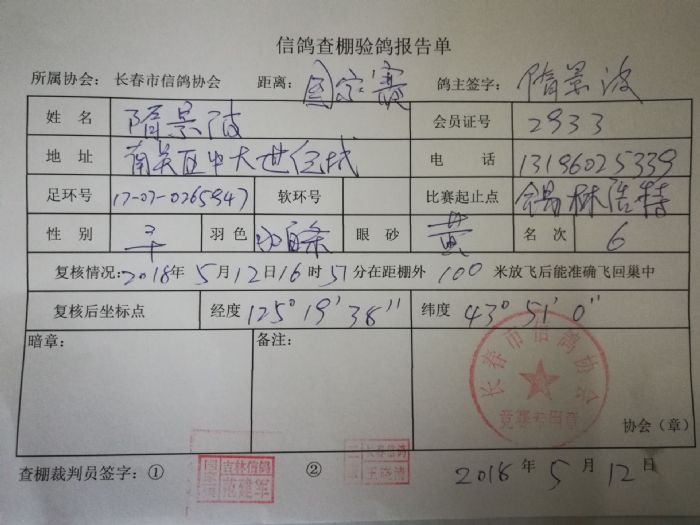 信鸽查棚验鸽报告单
所属协会: 长春市信鸽协会 距离: 国家赛 鸽主签字: 隋景波
姓 名 隋景波 会员证号 2933
地 址 南关区中大世纪城 电 话 13196025339
足环号 17-07-0265947 软环号 比赛起止点 锡林浩特
性 别 羽色 白条 眼 砂 黄 名 次 6
复核情况: 2018年 5月12日16时51分在距棚外 100 米放飞后能准确飞回巢中
复核后坐标点 经度 125° 19′ 38″ 纬度 43° 51′ 0″
暗章: 备注:
长春市信鸽协会
竞赛专用章
协会（章）
查棚裁判员签字: ① 国家级 吉林信鸽 范建军 ② 长春信鸽 王晓清 2018 年 5 月 12 日